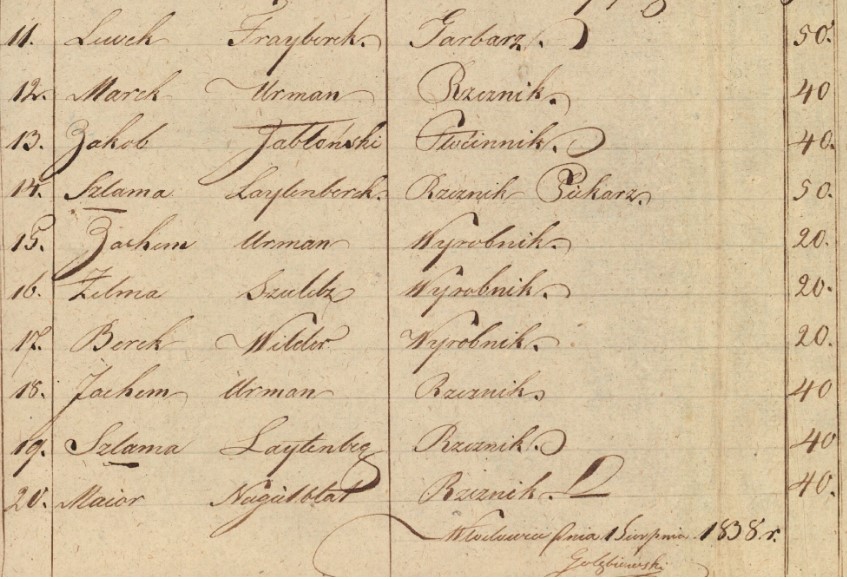 11. Lewek Frayberek. Garbarz. 50.
12. Marek Urman Rzeznik. 40
13. Jakob Jabłoński Płocinnik. 40.
14. Szlama Laytenberek. Rzeznik Piekarz. 50.
15. Jochem Urman Wyrobnik. 20.
16. Zelma Szuldz Wyrobnik. 20.
17. Berek Wilder Wyrobnik. 20.
18. Jachem Urman Rzeznik 40
19. Szlama Laytenbrg Rzeznik. 40
20. Maior Nagielblat Rzeznik. 40.
Włodawa dnia 1 Sierpnia 1838 r.
Gołębiewski